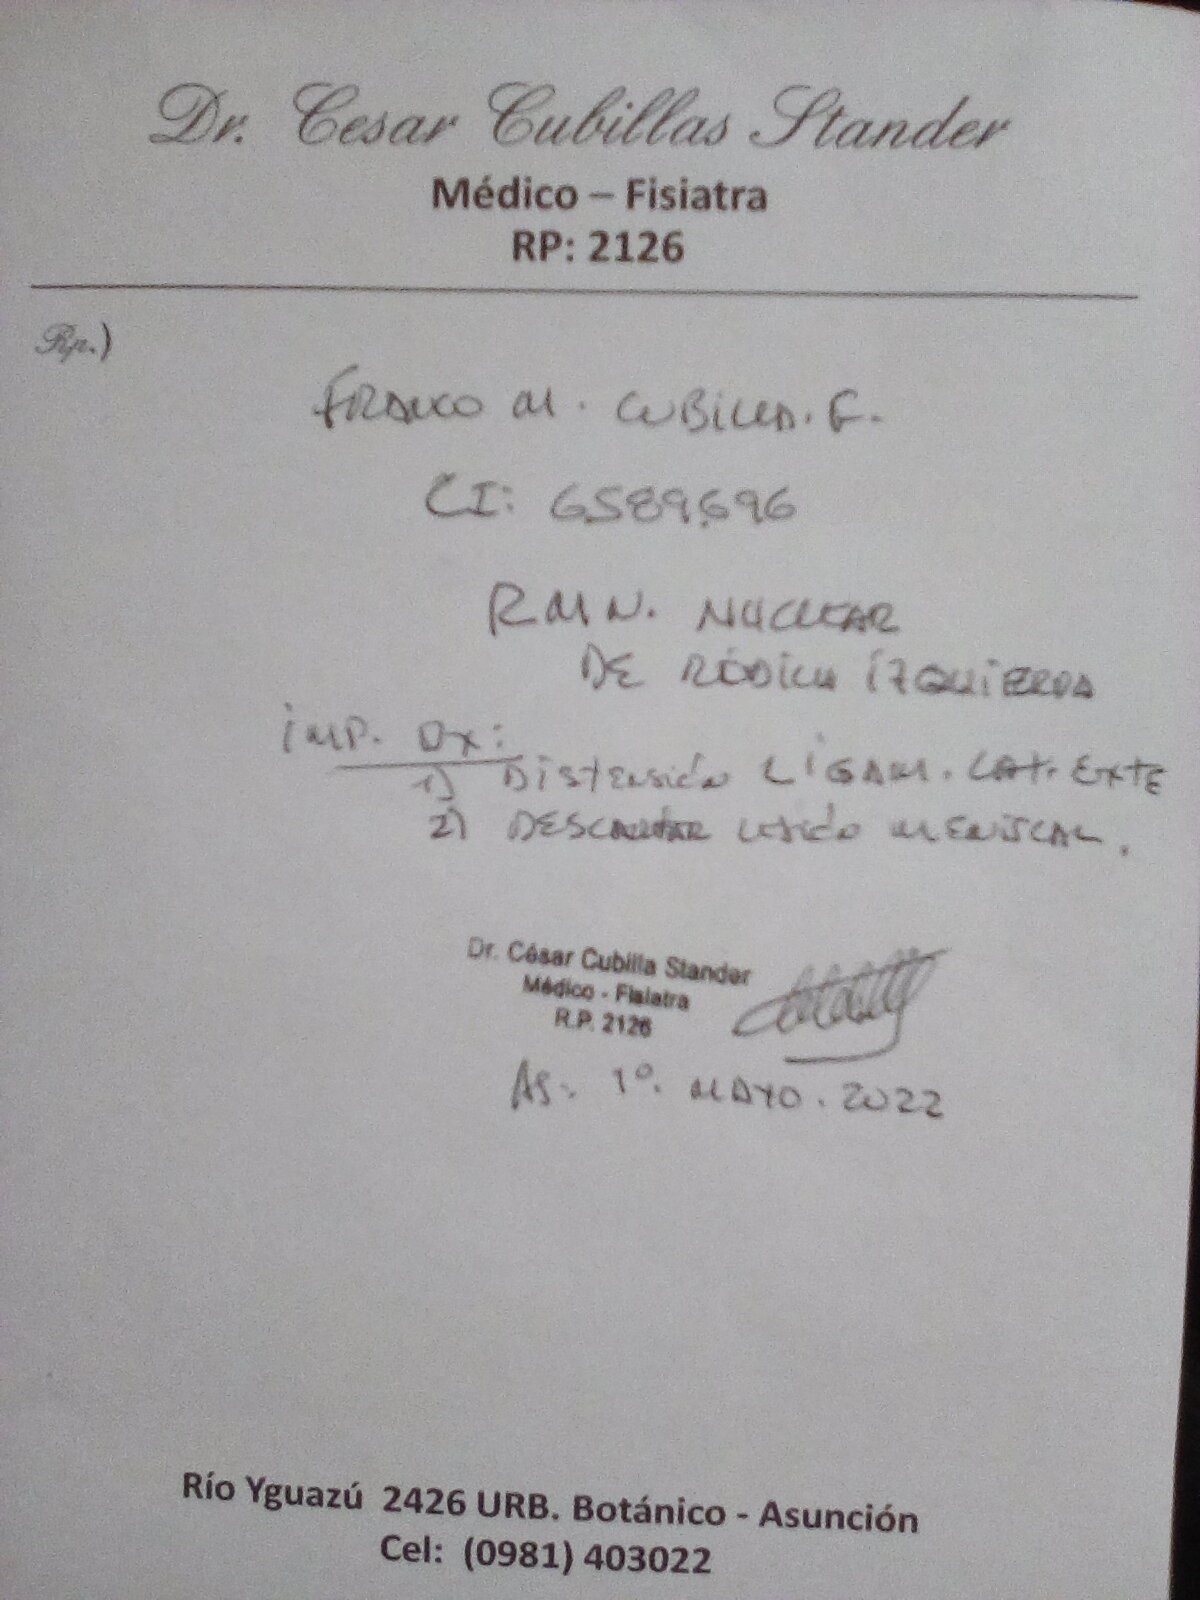 Dr. Cesar Cubillas Stander
Médico – Fisiatra
RP: 2126
Rp.)
FRANCO M. CUBILLA. F.
CI: 6589.696
RMN. NUCLEAR
DE RODILLA IZQUIERDA
IMP. DX:
1) DISTENSIÓN LIGAM. LAT. EXTE
2) DESCARTAR LESIÓN MENISCAL.
Dr. César Cubilla Stander
Médico - Fisiatra
R.P. 2126
AS: 1º. MAYO. 2022
Río Yguazú 2426 URB. Botánico - Asunción
Cel: (0981) 403022